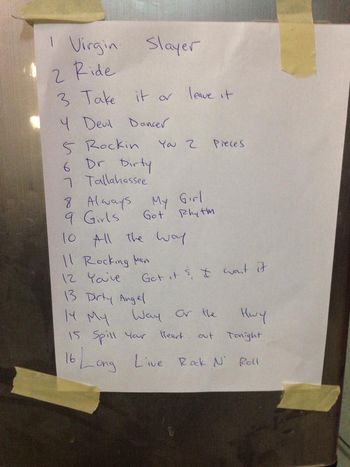 1 Virgin Slayer
2 Ride
3 Take it or leave it
4 Devil Dancer
5 Rockin You 2 Pieces
6 Dr Dirty
7 Tallahassee
8 Always My Girl
9 Girls Got Rhythm
10 All the Way
11 Rocking Man
12 You've Got it & I want it
13 Dirty Angel
14 My Way Or the Hwy
15 Spill Your Heart out Tonight
16 Long Live Rock N' Roll